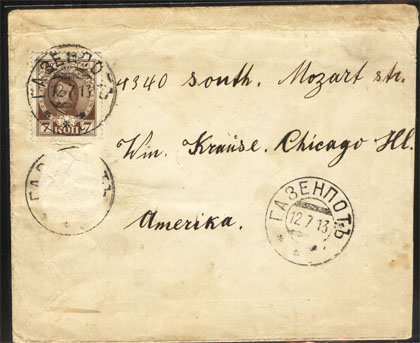 ГАЗЕНПОТЪ
12 7 13
7 КОП 7
4340 south. Mozart str.
Wm. Krause. Chicago Ill.
Amerika.
ГАЗЕНПОТЪ
12 7 13